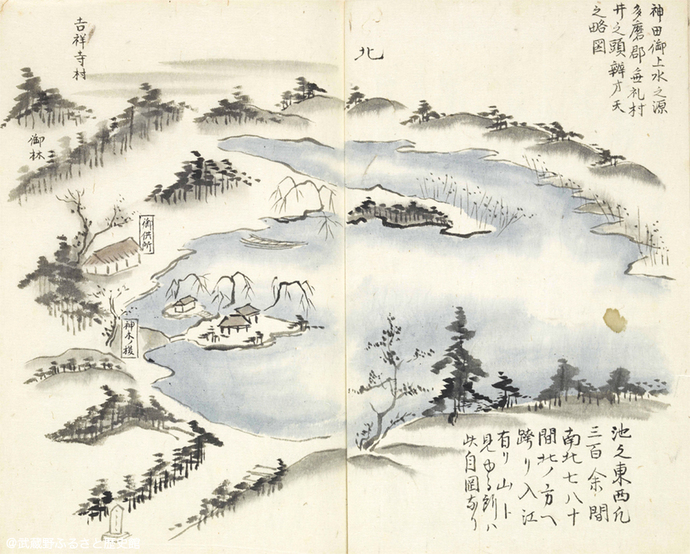 神田御上水之源
多磨郡無礼村
井之頭辨才天
之略図
北
吉祥寺村
御林
御供所
神木ノ桜
池之東西凡
三百余間
南北七八十
間北ノ方ヘ
跨リ入江
有リ山ト
見ゆる所ハ
©武蔵野ふるさと歴史館